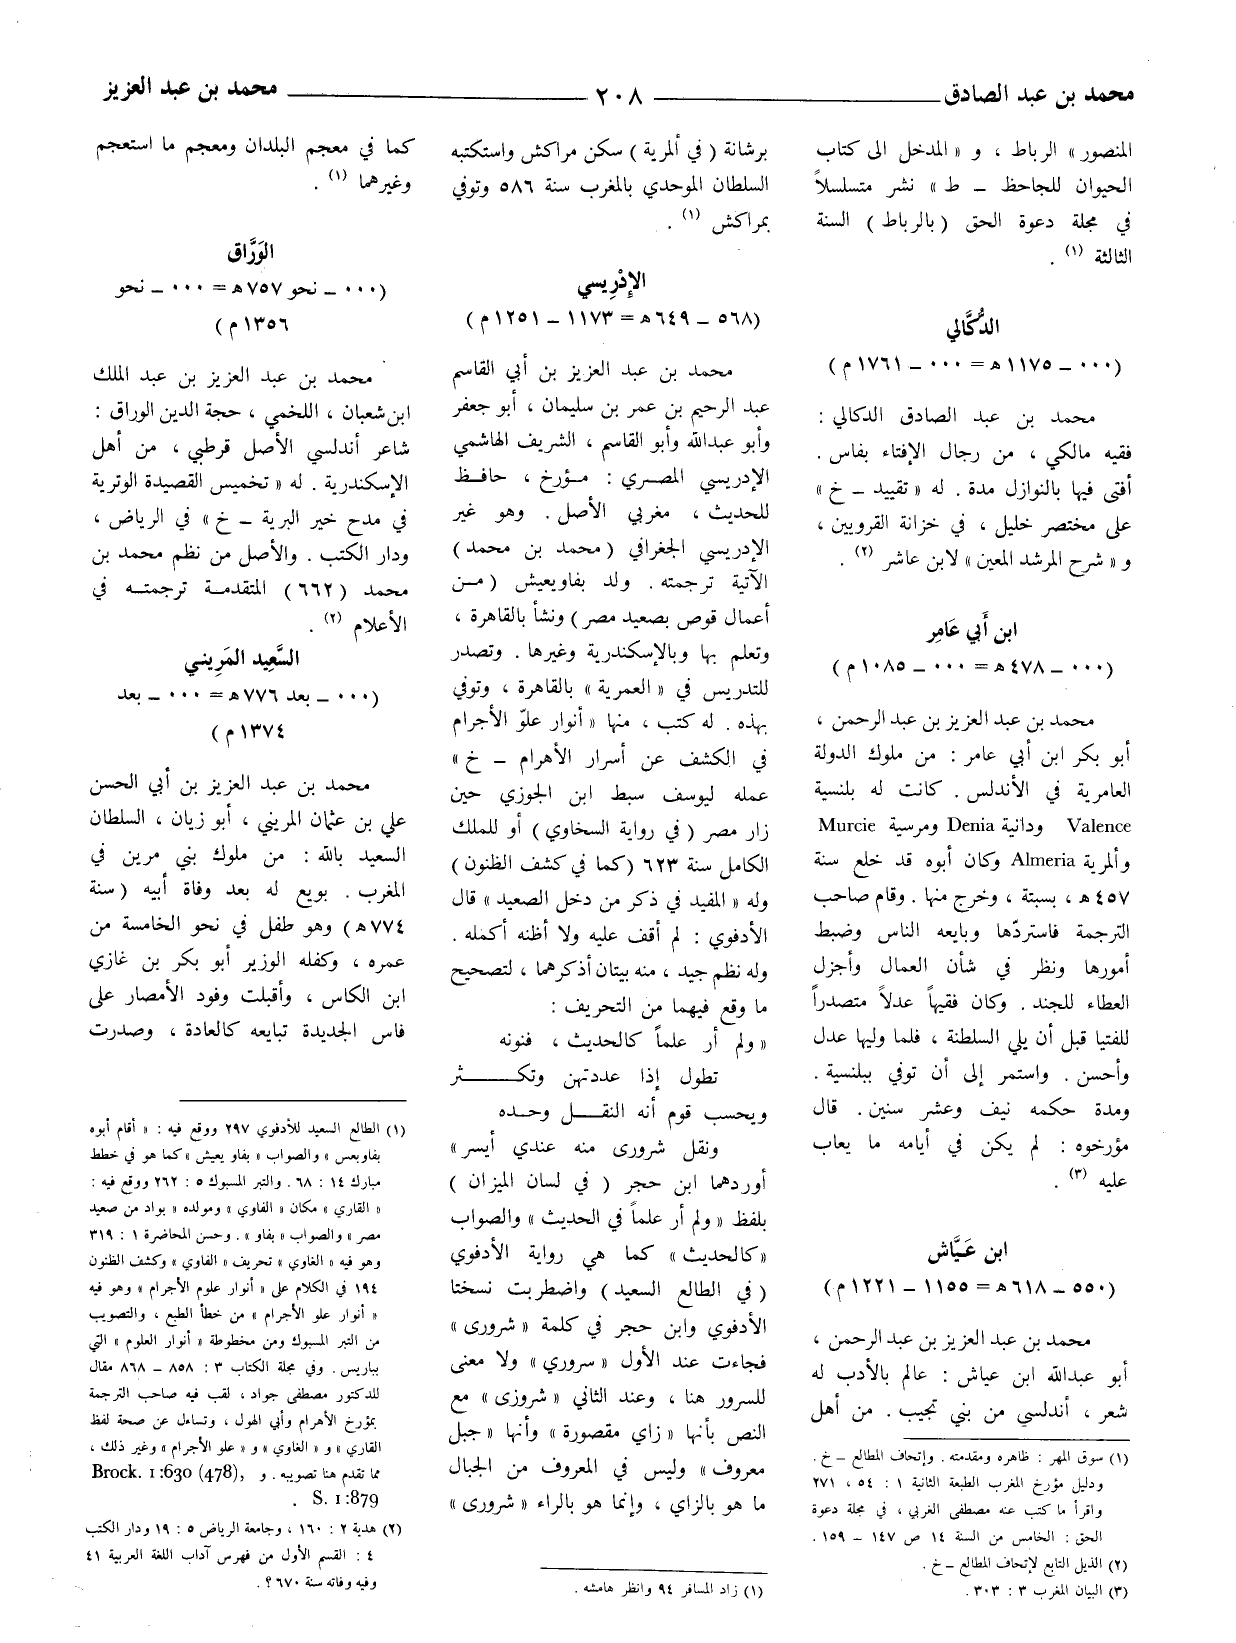 محمد بن عبد الصادق ــــــ ٢٠٨ ــــــ محمد بن عبد العزيز
المنصور » الرباط ، و « المدخل الى كتاب
الحيوان للجاحظ ـ ط » نشر متسلسلاً
في مجلة دعوة الحق ( بالرباط ) السنة
الثالثة (١) .
الدُّكَّالي
(٠٠٠ ـ ١١٧٥ هـ = ٠٠٠ ـ ١٧٦١ م)
محمد بن عبد الصادق الدكالي :
فقيه مالكي ، من رجال الإفتاء بفاس .
أفتى فيها بالنوازل مدة . له « تقييد ـ خ »
على مختصر خليل ، في خزانة القرويين ،
و « شرح المرشد المعين » لابن عاشر (٢) .
ابن أَبي عَامِر
(٠٠٠ ـ ٤٧٨ هـ = ٠٠٠ ـ ١٠٨٥ م)
محمد بن عبد العزيز بن عبد الرحمن ،
أبو بكر ابن أبي عامر : من ملوك الدولة
العامرية في الأندلس . كانت له بلنسية
Valence ودانية Denia ومرسية Murcie
وألمرية Almeria وكان أبوه قد خلع سنة
٤٥٧ هـ ، بسبتة ، وخرج منها . وقام صاحب
الترجمة فاستردّها وبايعه الناس وضبط
أمورها ونظر في شأن العمال وأجزل
العطاء للجند . وكان فقيهاً عدلاً متصدراً
للفتيا قبل أن يلي السلطنة ، فلما وليها عدل
وأحسن . واستمر إلى أن توفي ببلنسية .
ومدة حكمه نيف وعشر سنين . قال
مؤرخوه : لم يكن في أيامه ما يعاب
عليه (٣) .
ابن عَيَّاش
(٥٥٠ ـ ٦١٨ هـ = ١١٥٥ ـ ١٢٢١ م)
محمد بن عبد العزيز بن عبد الرحمن ،
أبو عبدالله ابن عياش : عالم بالأدب له
شعر ، أندلسي من بني تجيب . من أهل
(١) سوق المهر : ظاهره ومقدمته . وإتحاف المطالع ـ خ .
ودليل مؤرخ المغرب الطبعة الثانية ١ : ٥٤ ، ٢٧١
واقرأ ما كتب عنه مصطفى الغربي ، في مجلة دعوة
الحق : الخامس من السنة ١٤ ص ١٤٧ ـ ١٥٩ .
(٢) الذيل التابع لإتحاف المطالع ـ خ .
(٣) البيان المغرب ٣ : ٣٠٣ .
برشانة ( في ألمرية ) سكن مراكش واستكتبه
السلطان الموحدي بالمغرب سنة ٥٨٦ وتوفي
بمراكش (١) .
الإدْرِيسي
(٥٦٨ ـ ٦٤٩ هـ = ١١٧٣ ـ ١٢٥١ م)
محمد بن عبد العزيز بن أبي القاسم
عبد الرحيم بن عمر بن سليمان ، أبو جعفر
وأبو عبدالله وأبو القاسم ، الشريف الهاشمي
الإدريسي المصري : مؤرخ ، حافظ
للحديث ، مغربي الأصل . وهو غير
الإدريسي الجغرافي ( محمد بن محمد )
الآتية ترجمته . ولد بفاويعيش ( من
أعمال قوص بصعيد مصر ) ونشأ بالقاهرة ،
وتعلم بها وبالإسكندرية وغيرها . وتصدر
للتدريس في « العمرية » بالقاهرة ، وتوفي
بهذه . له كتب ، منها « أنوار علوّ الأجرام
في الكشف عن أسرار الأهرام ـ خ »
عمله ليوسف سبط ابن الجوزي حين
زار مصر ( في رواية السخاوي ) أو للملك
الكامل سنة ٦٢٣ ( كما في كشف الظنون )
وله « المفيد في ذكر من دخل الصعيد » قال
الأدفوي : لم أقف عليه ولا أظنه أكمله .
وله نظم جيد ، منه بيتان أذكرهما ، لتصحيح
ما وقع فيهما من التحريف :
« ولم أر علماً كالحديث ، فنونه
تطول إذا عددتهن وتكثر
ويحسب قوم أنه النقل وحده
ونقل شرورى منه عندي أيسر »
أوردهما ابن حجر ( في لسان الميزان )
بلفظ « ولم أر علماً في الحديث » والصواب
« كالحديث » كما هي رواية الأدفوي
( في الطالع السعيد ) واضطربت نسختا
الأدفوي وابن حجر في كلمة « شرورى »
فجاءت عند الأول « سروري » ولا معنى
للسرور هنا ، وعند الثاني « شروزى » مع
النص بأنها « زاي مقصورة » وأنها « جبل
معروف » وليس في المعروف من الجبال
ما هو بالزاي ، وإنما هو بالراء « شرورى »
(١) زاد المسافر ٩٤ وانظر هامشه .
كما في معجم البلدان ومعجم ما استعجم
وغيرهما (١) .
الوَرَّاق
(٠٠٠ ـ نحو ٧٥٧ هـ = ٠٠٠ ـ نحو
١٣٥٦ م)
محمد بن عبد العزيز بن عبد الملك
ابن شعبان ، اللخمي ، حجة الدين الوراق :
شاعر أندلسي الأصل قرطبي ، من أهل
الإسكندرية . له « تخميس القصيدة الوترية
في مدح خير البرية ـ خ » في الرياض ،
ودار الكتب . والأصل من نظم محمد بن
محمد ( ٦٦٢ ) المتقدمة ترجمته في
الأعلام (٢) .
السَّعِيد المَرِيني
(٠٠٠ ـ بعد ٧٧٦ هـ = ٠٠٠ ـ بعد
١٣٧٤ م)
محمد بن عبد العزيز بن أبي الحسن
علي بن عثمان المريني ، أبو زيان ، السلطان
السعيد بالله : من ملوك بني مرين في
المغرب . بويع له بعد وفاة أبيه ( سنة
٧٧٤ هـ ) وهو طفل في نحو الخامسة من
عمره ، وكفله الوزير أبو بكر بن غازي
ابن الكاس ، وأقبلت وفود الأمصار على
فاس الجديدة تبايعه كالعادة ، وصدرت
(١) الطالع السعيد للأدفوي ٢٩٧ ووقع فيه : « أقام أبوه
بفاوبعس » والصواب « بفاو يعيش » كما هو في خطط
مبارك ١٤ : ٦٨ . والتبر المسبوك ٥ : ٢٦٢ ووقع فيه :
« القاري » مكان « الفاوي » ومولده « بواد من صعيد
مصر » والصواب « بفاو » . وحسن المحاضرة ١ : ٣١٩
وهو فيه « الغاوي » تحريف « الفاوي » وكشف الظنون
١٩٤ في الكلام على « أنوار علوم الأجرام » وهو فيه
« أنوار علو الأجرام » من خطأ الطبع ، والتصويب
من التبر المسبوك ومن مخطوطة « أنوار العلوم » التي
بباريس . وفي مجلة الكتاب ٣ : ٨٥٨ ـ ٨٦٨ مقال
للدكتور مصطفى جواد ، لقب فيه صاحب الترجمة
بمؤرخ الأهرام وأبي الهول ، وتساءل عن صحة لفظ
القاري » و « الغاوي » و « علو الأجرام » وغير ذلك ،
مما تقدم هنا تصويبه . و Brock. I :630 (478),
S. I :879 .
(٢) هدية ٢ : ١٦٠ ، وجامعة الرياض ٥ : ١٩ ودار الكتب
٤ : القسم الأول من فهرس آداب اللغة العربية ٤١
وفيه وفاته سنة ٦٧٠ ؟ .